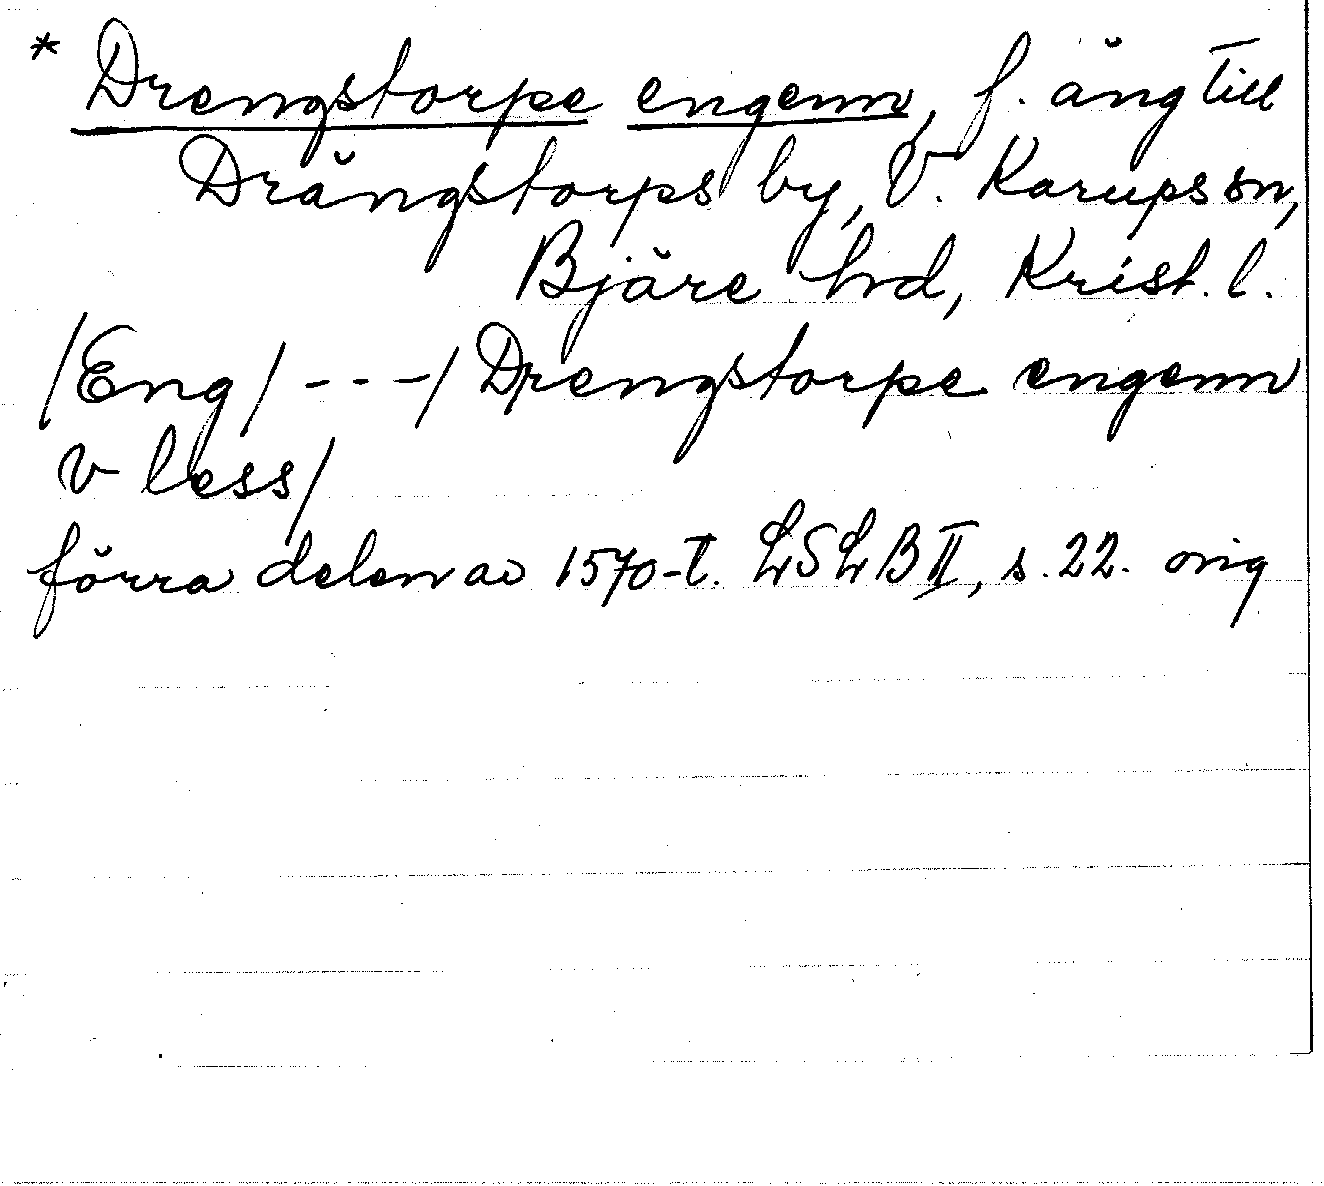 * Drengstorpe engenn, f. äng till
Drängstorps by, V. Karups sn,
Bjäre hrd, Krist. l.
/Eng/ - - -/ Drengstorpe engenn
v less/
förra delen av 1570-t. LSLB II, s. 22. orig